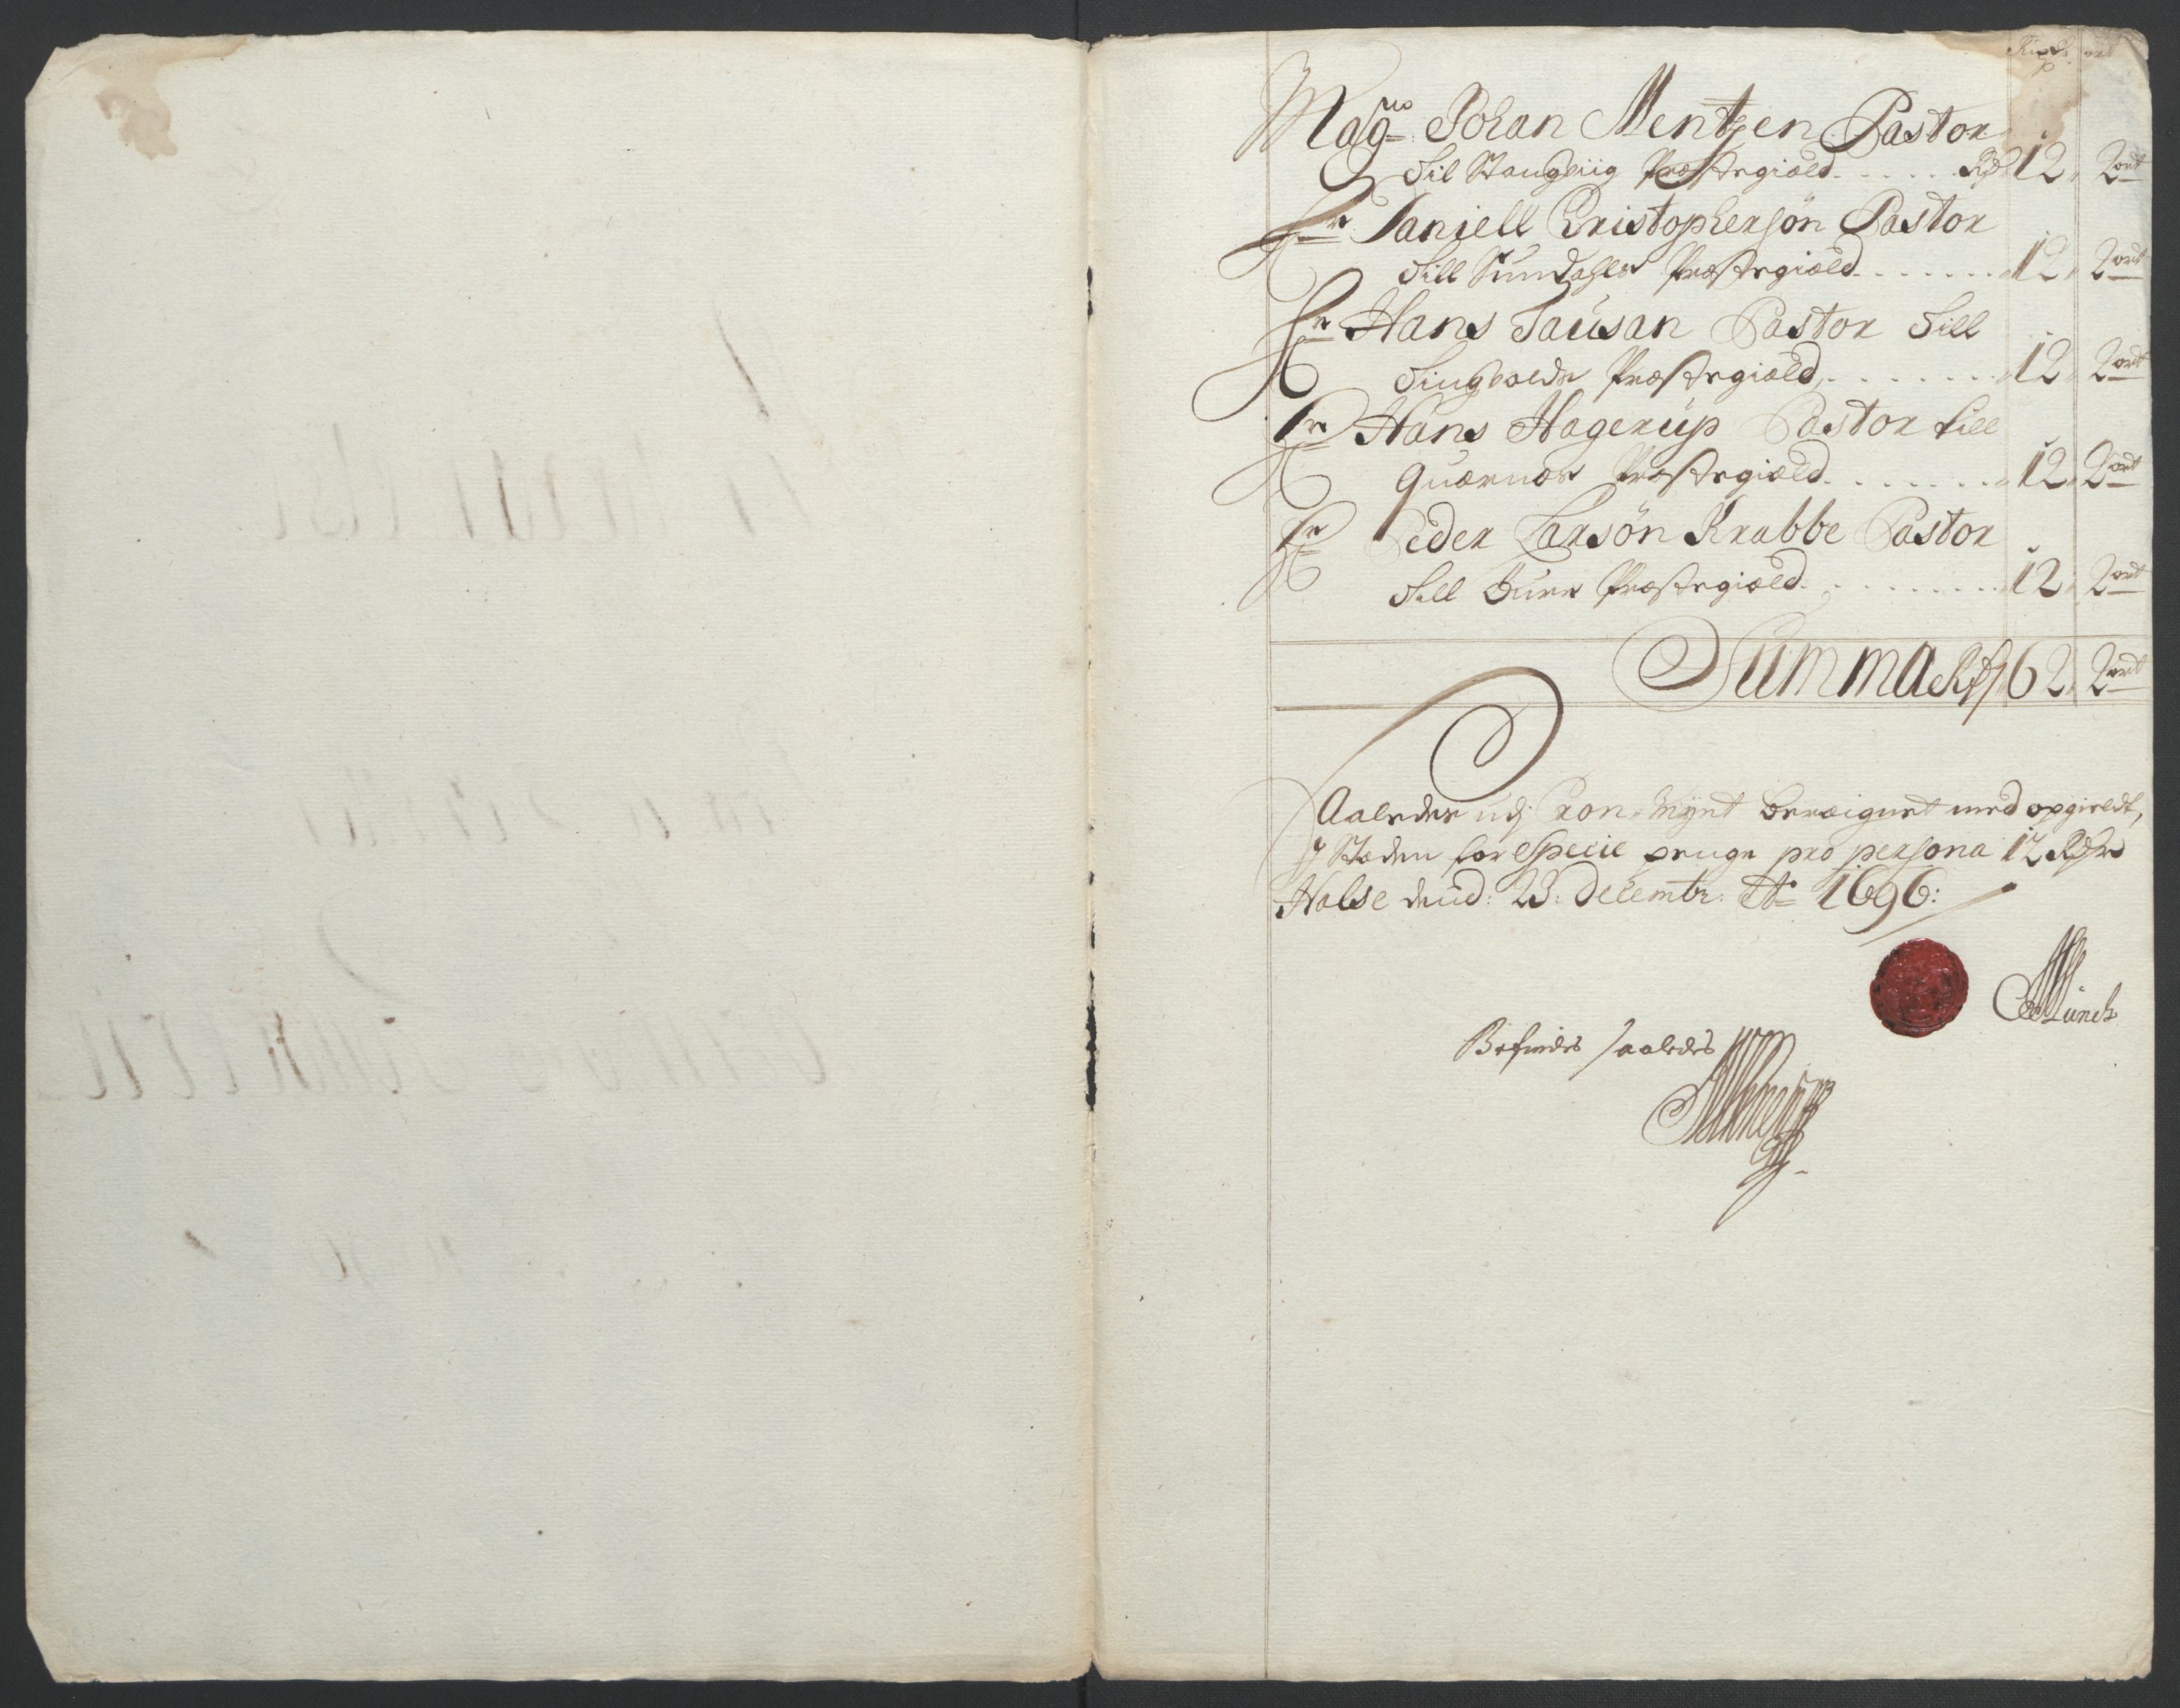 Rixd: ort
Mag^no Johan Mentzen Pastor
Til Stangviig Præstegiæld . . . . . Rdr 12 „ 2 ort
Hr Daniell Christophersøn Pastor
Till Sundahls Præstegiæld . . . . . . . 12 „ 2 ort
Hr Hans Tausan Pastor Till
Tingvolds Præstegiæld . . . . . . . 12 „ 2 ort
Hr Hans Hagerup Pastor till
Quærnæs Præstegiæld . . . . . . . 12 „ 2 ort
Hr Peder Larsøn Krabbe Pastor
Till Øure Præstegiæld . . . . . . . . 12 „ 2 ort
Summa Rdr 62 „ 2 ort
Saaledes udj Cron-Mynt beræignet med opgieldt,
J Stæden for Specie penge pro persona 12 Rdr
Halse dend: 23: Decembr: Ao 1696:
Münch
Befindes saaledes